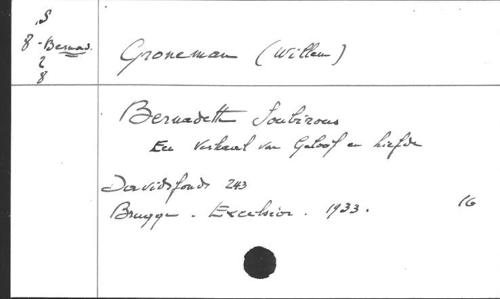 S
8 - Bernad.
2
8
Groneman (Willem)
Bernadett Soubirous
Een verhaal van Geloof en liefde
Davidsfonds 243
Brugge - Excelsior. 1933.
16